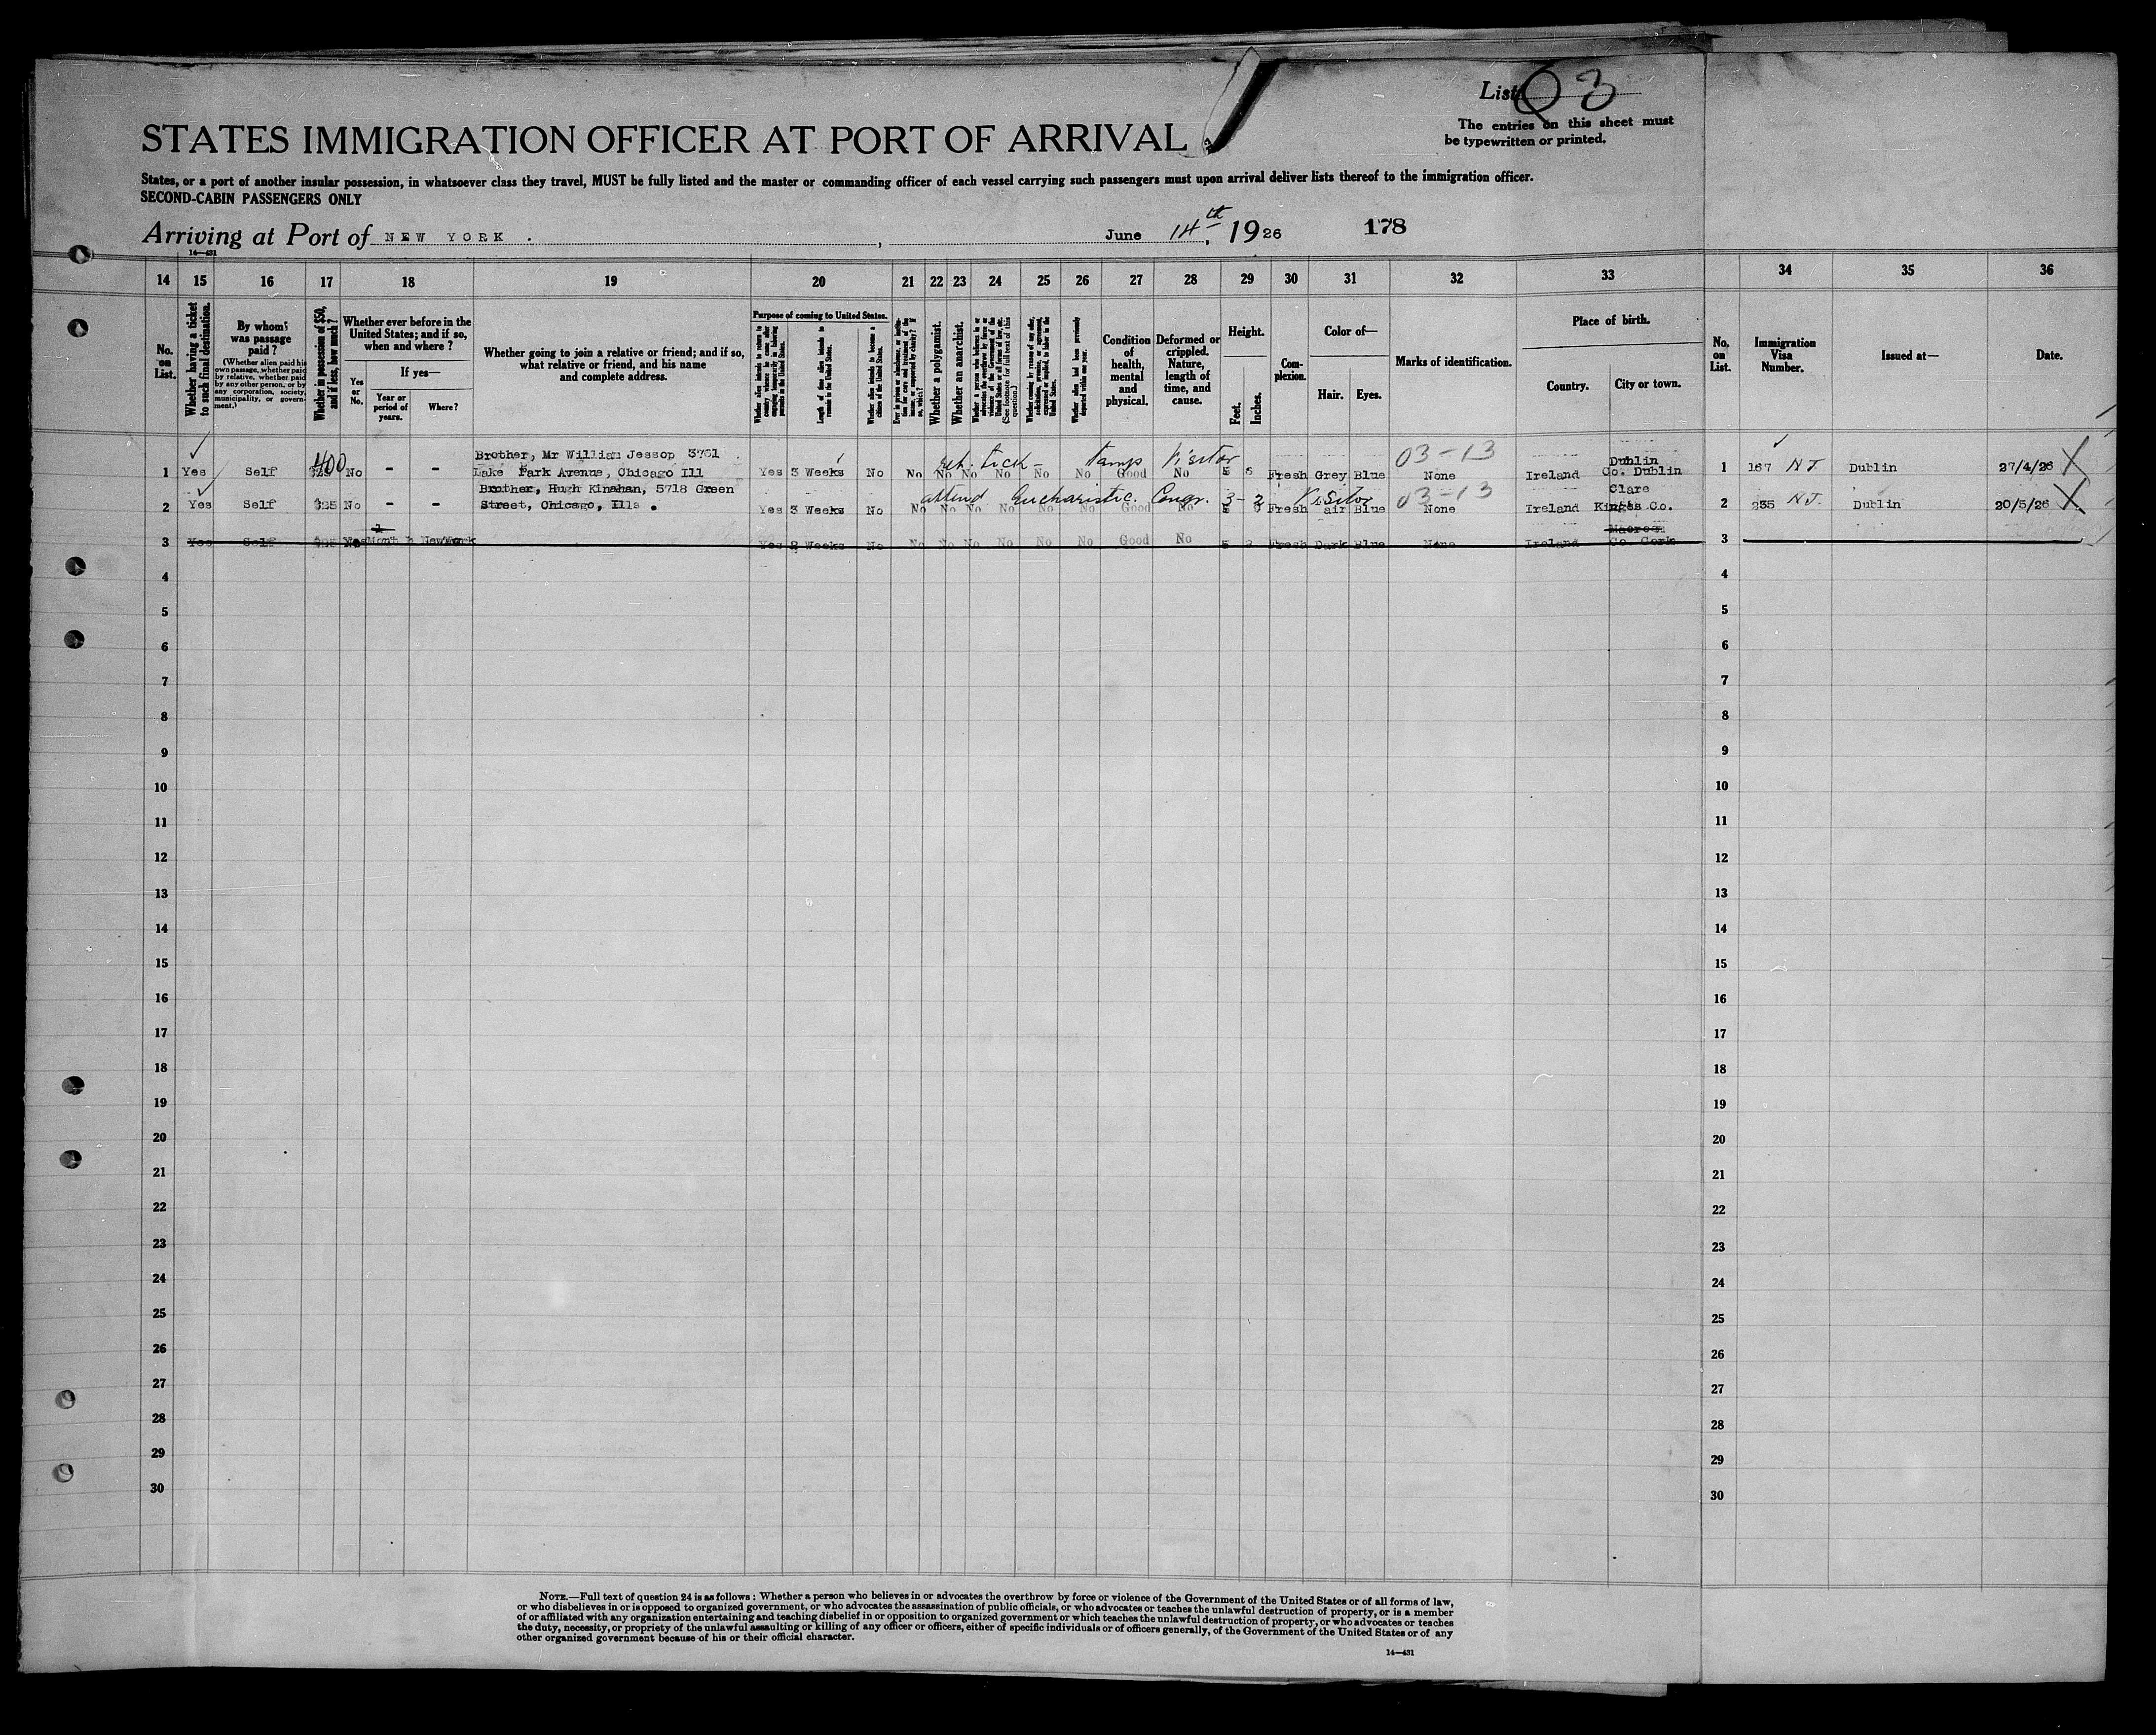 List 3
The entries on this sheet must
be typewritten or printed.
STATES IMMIGRATION OFFICER AT PORT OF ARRIVAL
States, or a port of another insular possession, in whatsoever class they travel, MUST be fully listed and the master or commanding officer of each vessel carrying such passengers must upon arrival deliver lists thereof to the immigration officer.
SECOND-CABIN PASSENGERS ONLY
Arriving at Port of NEW YORK . , June 14th, 1926 178
14—431
14 15 16 17 18 19 20 21 22 23 24 25 26 27 28 29 30 31 32 33 34 35 36
No. on List.
Whether having a ticket to such final destination.
By whom was passage paid?
(Whether alien paid his own passage, whether paid by relative, whether paid by any other person, or by any corporation, society, municipality, or government.)
Whether in possession of $50, and if less, how much?
Whether ever before in the United States; and if so, when and where?
Yes or No.
If yes—
Year or period of years.
Where?
Whether going to join a relative or friend; and if so, what relative or friend, and his name and complete address.
Purpose of coming to United States.
Length of time alien intends to remain in the United States.
Whether alien intends to become a citizen of the United States.
Whether a polygamist.
Whether an anarchist.
(See footnote for full text of this question.)
Whether alien had been previously deported within one year.
Condition of health, mental and physical.
Deformed or crippled. Nature, length of time, and cause.
Height.
Feet.
Inches.
Complexion.
Color of—
Hair.
Eyes.
Marks of identification.
Place of birth.
Country.
City or town.
No. on List.
Immigration Visa Number.
Issued at—
Date.
Brother, Mr William Jessop 3701
ret. tick Visitor 03-13 Dublin
1 Yes Self 400 No - - Lake Park Avenue, Chicago Ill Yes 3 Weeks No No No No No No No Good No 5 Fresh Grey Blue None Ireland Co. Dublin 1 167 Dublin 27/4/26 X
Brother, Hugh Kinahan, 5718 Green
attend Eucharistic. Congr. 3-2 Visitor 03-13 Clare
2 Yes Self $25 No - - Street, Chicago, Ills . Yes 3 Weeks No No No No No No No Good No 5 Fresh Fair Blue None Ireland Kings Co. 2 235 Dublin 20/5/26 X
1
3 Yes Self Yes Month NewYork Yes 2 Weeks No No No No No No No Good No 5 Fresh Dark Blue None Ireland Co. Cork 3
4 4
5 5
6 6
7 7
8 8
9 9
10 10
11 11
12 12
13 13
14 14
15 15
16 16
17 17
18 18
19 19
20 20
21 21
22 22
23 23
24 24
25 25
26 26
27 27
28 28
29 29
30 30
NOTE.—Full text of question 24 is as follows: Whether a person who believes in or advocates the overthrow by force or violence of the Government of the United States or of all forms of law,
or who disbelieves in or is opposed to organized government, or who advocates the assassination of public officials, or who advocates or teaches the unlawful destruction of property, or is a member
of or affiliated with any organization entertaining and teaching disbelief in or opposition to organized government or which teaches the unlawful destruction of property, or who advocates or teaches
the duty, necessity, or propriety of the unlawful assaulting or killing of any officer or officers, either of specific individuals or of officers generally, of the Government of the United States or of any
other organized government because of his or their official character.
14—431